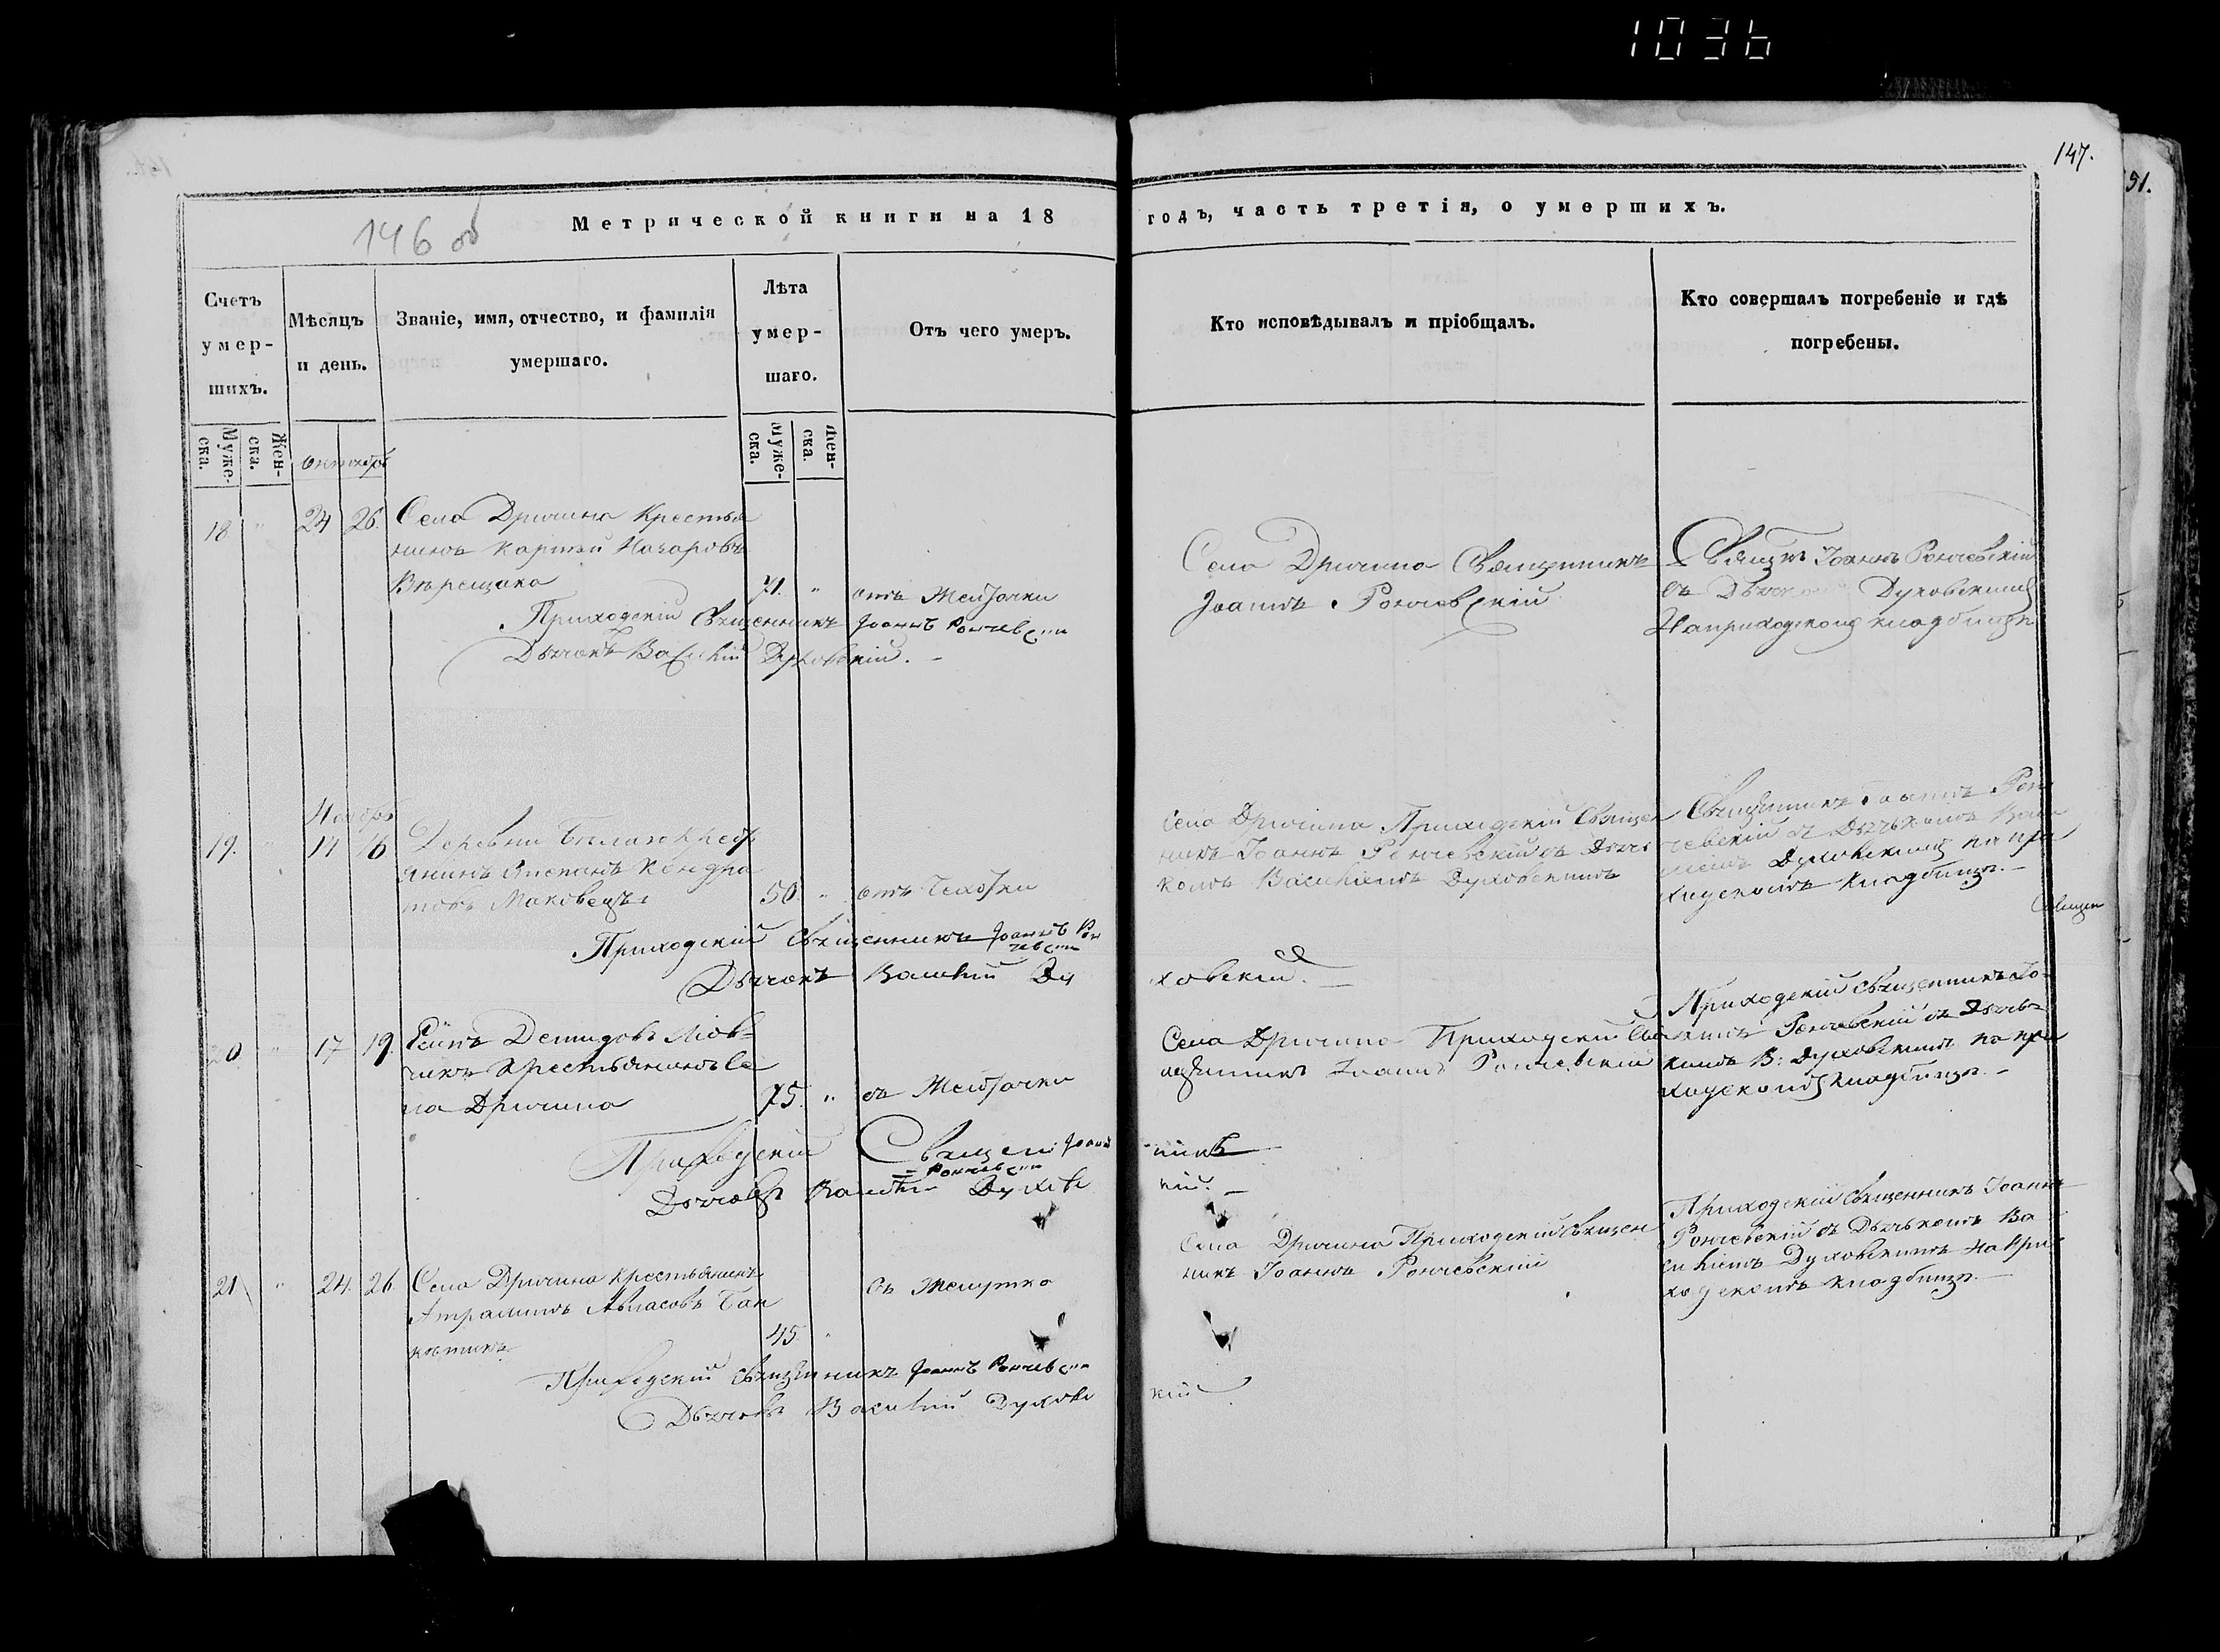 1036
147.
51.
146 об
Метрической книги на 18
годъ, часть третія, о умершихъ.
Счетъ умер-шихъ.
Мѣсяцъ и день.
Званіе, имя, отчество, и фамилія умершаго.
Лѣта умер-шаго.
Отъ чего умеръ.
Кто исповѣдывалъ и пріобщалъ.
Кто совершалъ погребеніе и гдѣ погребены.
Муже-ска.
Жен-ска.
Муже-ска.
Жен-ска.
октябрь
18 " 24 26.
Села Дричина Крестья
нинъ
Верещака
71. "
Приходскій Священникъ Іоаннъ Рончевскій
Дьячокъ Василій Духовскій.
Села Дричина Священникъ
Іоаннъ Рончевскій
Іоаннъ Рончевскій
съ Духовскимъ
На приходскомъ кладбищѣ
Ноябрь
19. " 14 16
Деревни
янинъ Кондра
товъ Маковецъ
50. "
отъ
Приходскій Священникъ Іоаннъ Рон
чевскій
Дьячокъ Василій Ду
ховскій.
Села Дричина Приходскій Священ
никъ Іоаннъ Рончевскій съ Дьяч
комъ Василіемъ Духовскимъ
Священникъ Іоаннъ Рон
чевскій съ Дьячкомъ Васи
ліемъ Духовскимъ на при
ходскомъ кладбищѣ.
20 " 17 19.
Демидовъ
чикъ Крестьянинъ Се
ла Дричина
75. "
Приходскій Священ Іоаннъ
никъ
Рончевскій
Дьячокъ Василій Духовс
кій.
Села Дричина Приходскій Свя
щенникъ Іоаннъ Рончевскій
Приходскій Священникъ Іо
аннъ Рончевскій съ Дьячь
комъ В: Духовскимъ на при
ходскомъ кладбищѣ.
21 " 24. 26.
Села Дричина Крестьянинъ
45. "
Приходскій Священникъ Іоаннъ Рончевскій
Дьячокъ Василій Духовс
кій
Села Дричина Приходскій Священ
никъ Іоаннъ Рончевскій
Приходскій Священникъ Іоаннъ
Рончевскій съ Дьячькомъ Ва
силіемъ Духовскимъ на при
ходскомъ кладбищѣ.